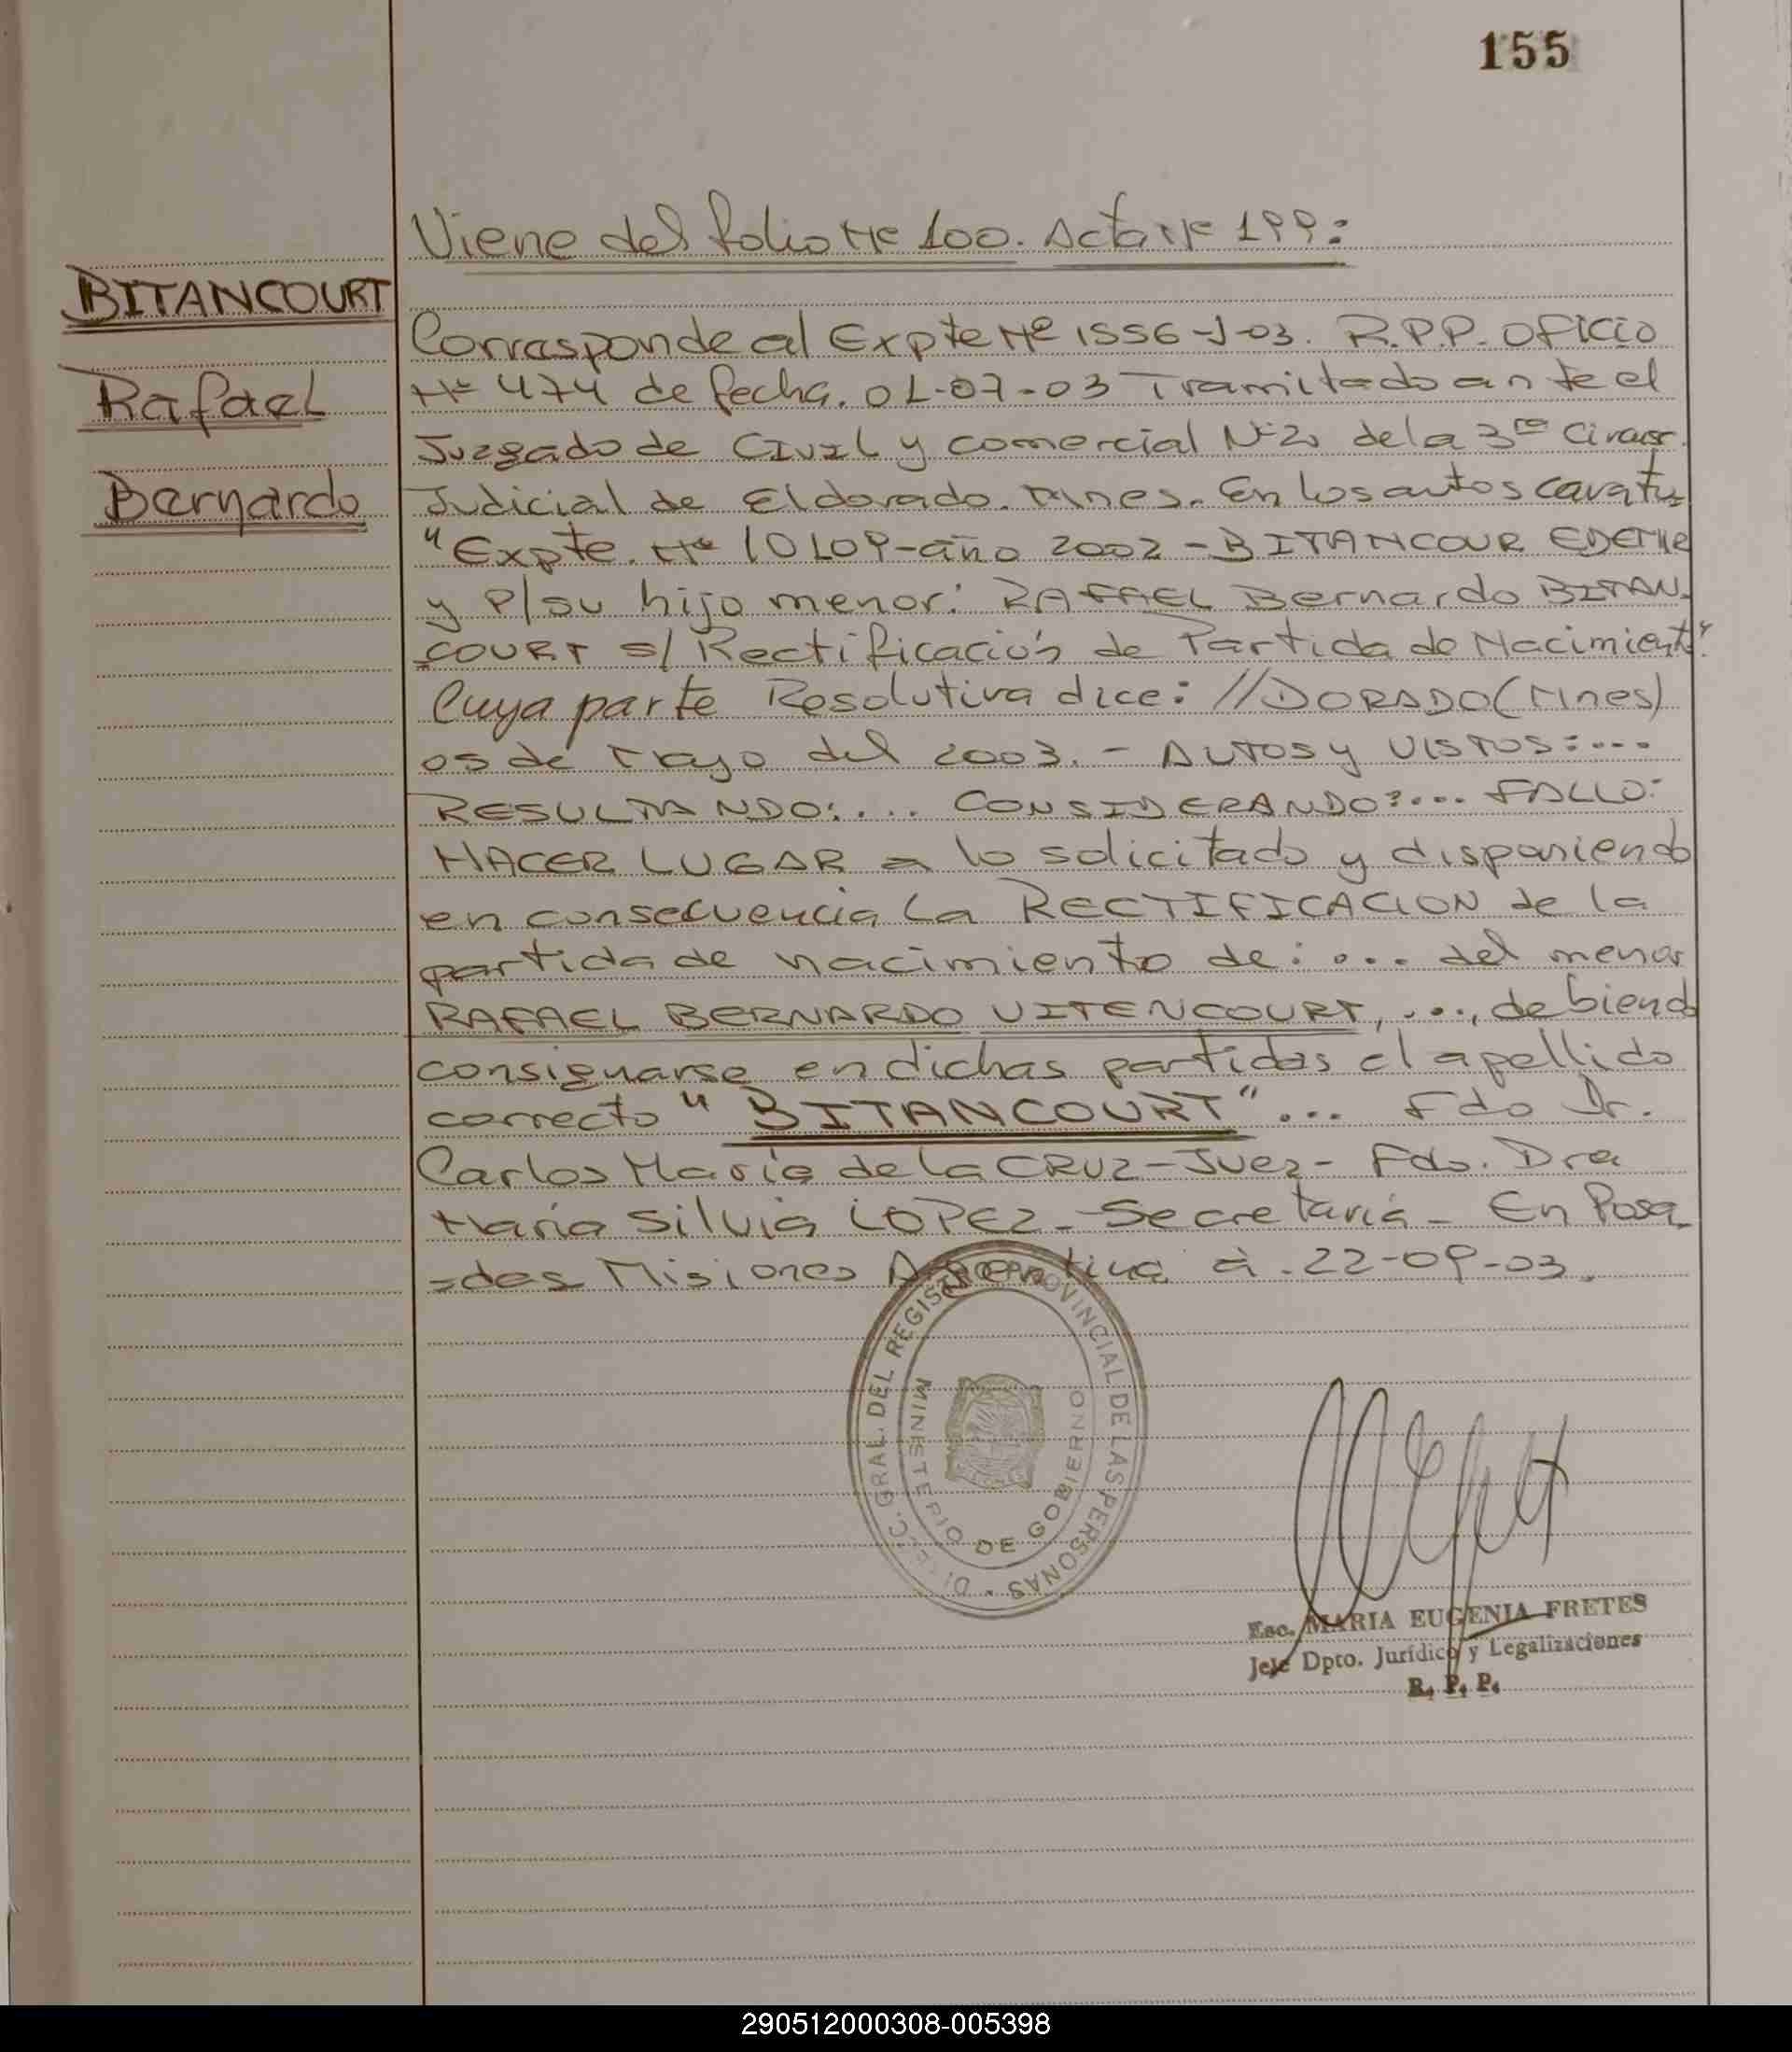 155
Viene del folio Nº 100. Acta Nº 199:
BITANCOURT
Rafael
Bernardo
Corresponde al Expte Nº 1556-J-03. R.P.P. Oficio
Nº 474 de fecha. 01-07-03 Tramitado ante el
Juzgado de Civil y comercial Nº 2, de la 3ra Circusc.
Judicial de Eldorado. Mnes. En los autos caratu
"Expte. Nº 10109-año 2002 - BITANCOUR
y P/su hijo menor: RAFAEL Bernardo BITAN-
COURT S/ Rectificación de Partida de Nacimiento".
Cuya parte Resolutiva dice: //DORADO (Mnes)
05 de Mayo del 2003. - AUTOS y VISTOS:...
RESULTANDO:... CONSIDERANDO:... FALLO:
HACER LUGAR a lo solicitado y disponiendo
en consecuencia, la RECTIFICACION de la
partida de nacimiento de: ... del menor
RAFAEL BERNARDO VITENCOURT, ..., debiendo
consignarse en dichas partidas el apellido
correcto "BITANCOURT"... Fdo Dr.
Carlos María de la CRUZ - Juez - Fdo. Dra
María Silvia LOPEZ - Secretaria - En Posa
=das Misiones Argentina à. 22-09-03.
DIREC. GRAL. DEL REGISTRO PROVINCIAL DE LAS PERSONAS
MINISTERIO DE GOBIERNO
Esc. MARIA EUGENIA FRETES
Jefe Dpto. Jurídico y Legalizaciones
R. P. P.
290512000308-005398